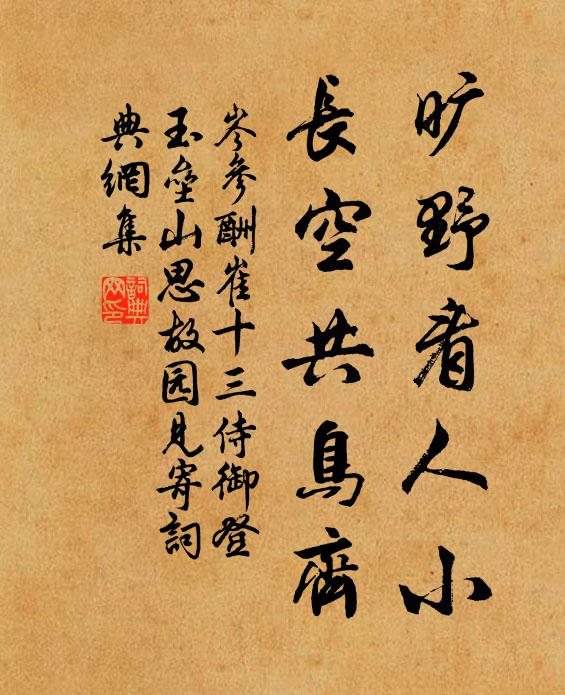 旷野看人小
長空共鳥齊
岑參酬崔十三侍御登
玉壘山思故园見寄詞
典網集
詞典網印